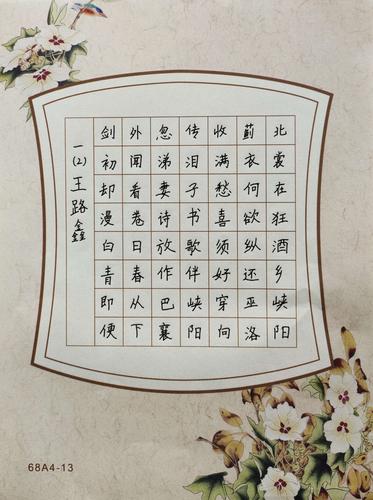 剑外忽传收蓟北
初闻涕泪满衣裳
却看妻子愁何在
漫卷诗书喜欲狂
白日放歌须纵酒
青春作伴好还乡
即从巴峡穿巫峡
便下襄阳向洛阳
一(2)王路鑫
68A4-13